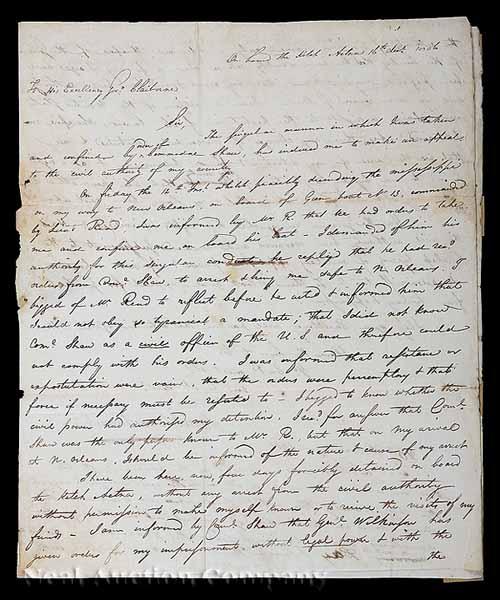 On board the Ketch Aetna 16th Decr 1806
To His Excellency Govr Claiborne
Sir,
The singular manner in which I was taken
and confined by Commodore Shaw, has induced me to make an appeal
to the civil authority of my country
On friday the 12th Inst. whilst peaceably descending the mississippi
on my way to New Orleans in board of Gun boat No 13, commanded
by Lieut Reed I was informed by Mr R that he had orders to take
me and confine me on board his boat - I demanded of him his
authority for this singular conduct he replied that he had recd
orders from Comr Shaw, to arrest & bring me safe to N. Orleans. I
begged of Mr Reed to reflect before he acted & informed him that
I could not obey so tyranical a mandate; that I did not know
Comr Shaw as a civil officer of the U. S. and therefore could
not comply with his orders. I was informed that resistance or
expostulation were vain, that the orders were peremptory & that
force if necessary must be resorted to I begged to know whether the
civil power had authorised my detention. I recd for answer that Comr
Shaw was the only known to Mr R, but that on my arrival
at N. Orleans, I should be informed of the nature & cause of my arrest
I have been here, now, four days forcibly detained on board
the Ketch Aetna, without any arrest from the civil authority
without permission to make myself known or to receive the visits of my
friends - I am informed by Comr Shaw that Genl Wilkinson has
given orders for my imprisonment without legal power & with the
the
Neal Auction Company